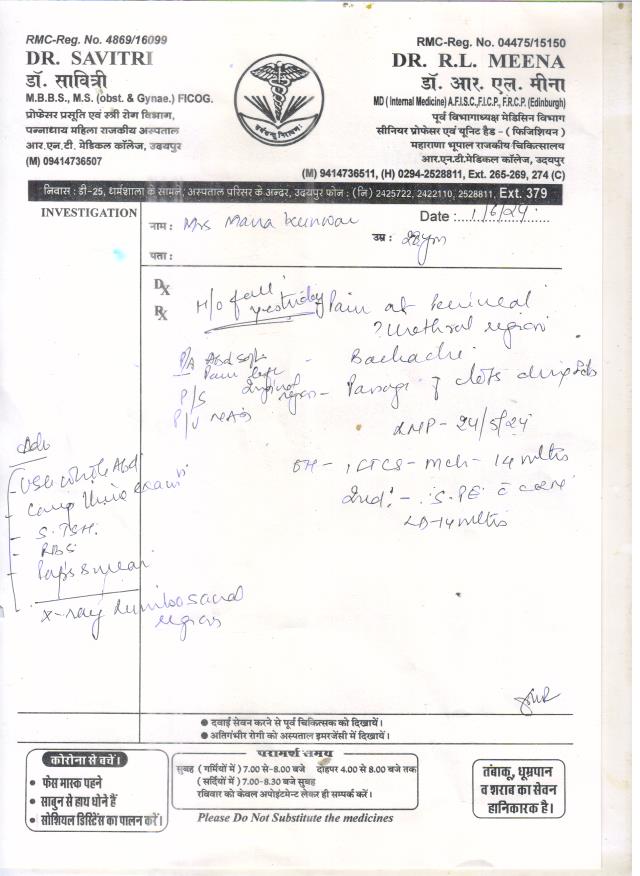 RMC-Reg. No. 4869/16099
DR. SAVITRI
डॉ. सावित्री
M.B.B.S., M.S. (obst. & Gynae.) FICOG.
प्रोफेसर प्रसूति एवं स्त्री रोग विभाग,
पन्नाधाय महिला राजकीय अस्पताल
आर.एन.टी. मेडिकल कॉलेज, उदयपुर
(M) 09414736507
RMC-Reg. No. 04475/15150
DR. R.L. MEENA
डॉ. आर. एल. मीना
MD ( Internal Medicine) A.F.I.S.C.,F.I.C.P., F.R.C.P. (Edinburgh)
पूर्व विभागाध्यक्ष मेडिसिन विभाग
सीनियर प्रोफेसर एवं यूनिट हैड - ( फिजिशियन )
महाराणा भूपाल राजकीय चिकित्सालय
आर.एन.टी.मेडिकल कॉलेज, उदयपुर
(M) 9414736511, (H) 0294-2528811, Ext. 265-269, 274 (C)
निवास : डी-25, धर्मशाला के सामने, अस्पताल परिसर के अन्दर, उदयपुर फोन : (नि) 2425722, 2422110, 2528811, Ext. 379
INVESTIGATION
नाम : Mrs Mana Kunwar
Date : 1/6/24
उम्र : 22ym
पता :
Dx
Rx
H/O fall yesterday
Pain at
? Urethral region
P/A Abd soft
Backache
Pain
P/S region - Passage of clots
P/V NAD
LMP - 24/5/24
OH - 1 LSCS - Mch - 14 mths
Ind. - S. PE
LD-14 mths
Adv
- USG whole Abd
- Comp Urine exam
- S. TSH.
- RBS
- Pap's smear
X-ray Lumbosacral region
● दवाई सेवन करने से पूर्व चिकित्सक को दिखायें।
● अतिगंभीर रोगी को अस्पताल इमरजेंसी में दिखायें।
कोरोना से बचें।
• फेस मास्क पहने
• साबुन से हाथ धोने हैं
• सोशियल डिस्टेंस का पालन करें।
परामर्श समय
सुबह ( गर्मियों में ) 7.00 से-8.00 बजे दोहपर 4.00 से 8.00 बजे तक
( सर्दियों में ) 7.00-8.30 बजे सुबह
रविवार को केवल अपोइंटमेन्ट लेकर ही सम्पर्क करें।
Please Do Not Substitute the medicines
तंबाकू, धूम्रपान
व शराब का सेवन
हानिकारक है।